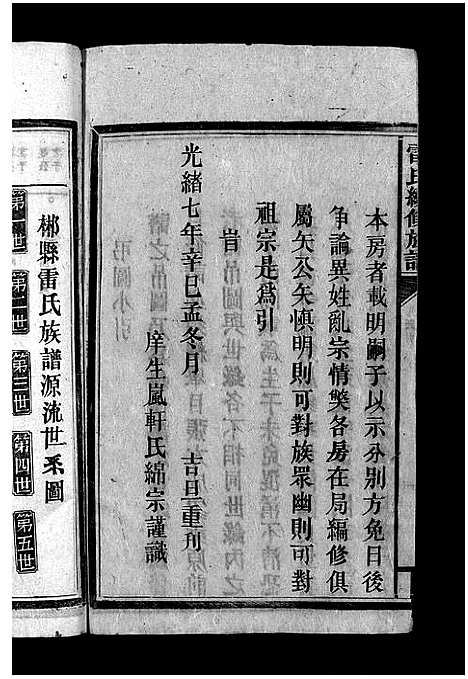 雷氏續修族譜
本房者載明嗣子以示分別方免日後
爭論異姓亂宗情獘各房在局編修俱
屬矢公矢慎明則可對族眾幽則可對
祖宗是為引
旹
光緒七年辛巳孟冬月 吉旦重刊
庠生嵐軒氏綿宗謹識
郴縣雷氏族譜源流世系圖
第一世 第二世 第三世 第四世 第五世